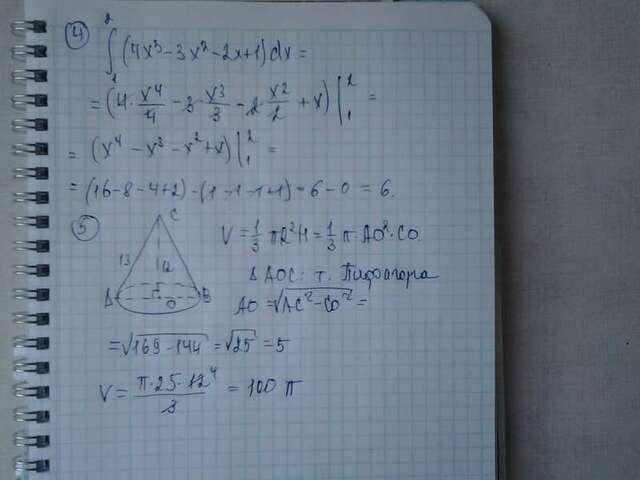 ④
∫₁² (4x³-3x²-2x+1)dx =
= (4·x⁴/4 - 3·x³/3 - 2·x²/2 + x)|₁² =
= (x⁴ - x³ - x² + x)|₁² =
= (16-8-4+2) - (1-1-1+1) = 6-0 = 6.
⑤
C
13
12
A
O
B
V = 1/3 πR²H = 1/3 π·AO²·CO.
Δ AOC: т. Пифагора
AO = √(AC²-CO²) =
= √(169-144) = √25 = 5
V = π·25·12⁴/3 = 100 π